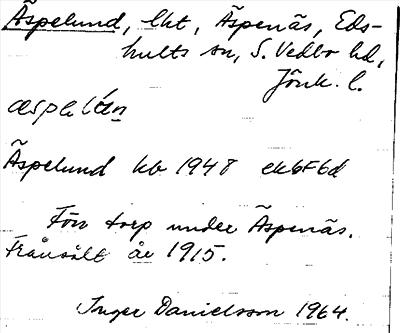 Äspelund, lht, Äspenäs, Eds-
hults sn, S. Vedbo hd,
Jönk. l.
æspelán
Äspelund kb 1948 ek6F6d
Förr torp under Äspenäs.
Frånsålt år 1915.
Inger Danielsson 1964.